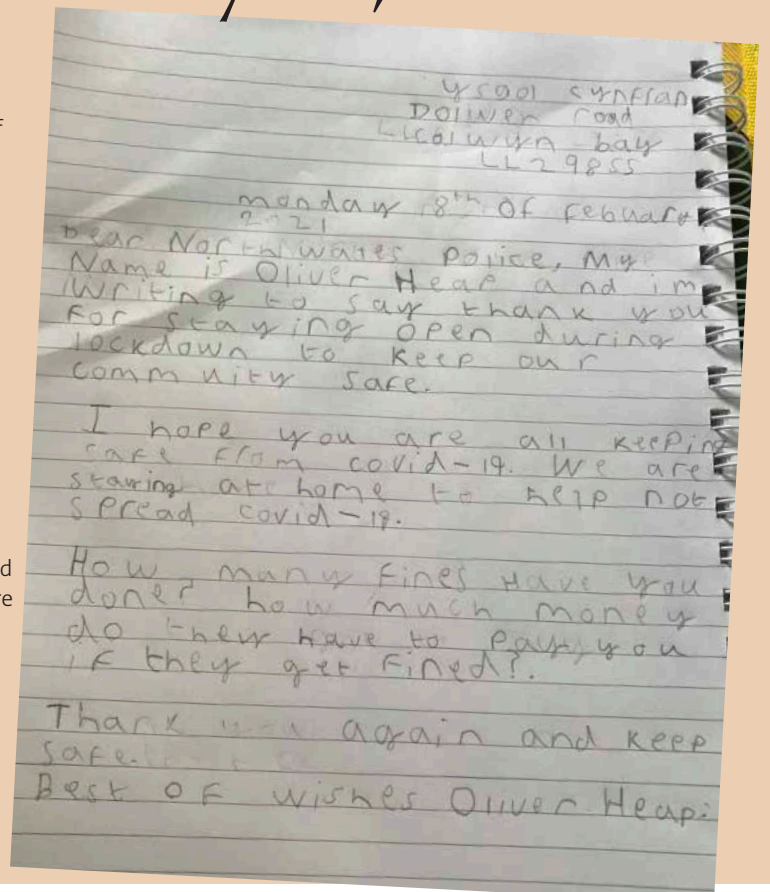 yscol cynfran
Dolwen road
Llcolwyn bay
LL29855
monday 8th Of febuary
2021
Dear North wales Police, My
Name is Oliver Heap and im
Writing to say thank you
For staying open during
lockdown to keep our
community safe.
I hope you are all keeping
safe from covid-19. We are
staying at home to help not
spread covid-19.
How many fines Have you
done? how much money
do they have to pay you
if they get fined?.
Thank you again and keep
safe.
Best Of wishes Oliver Heap.